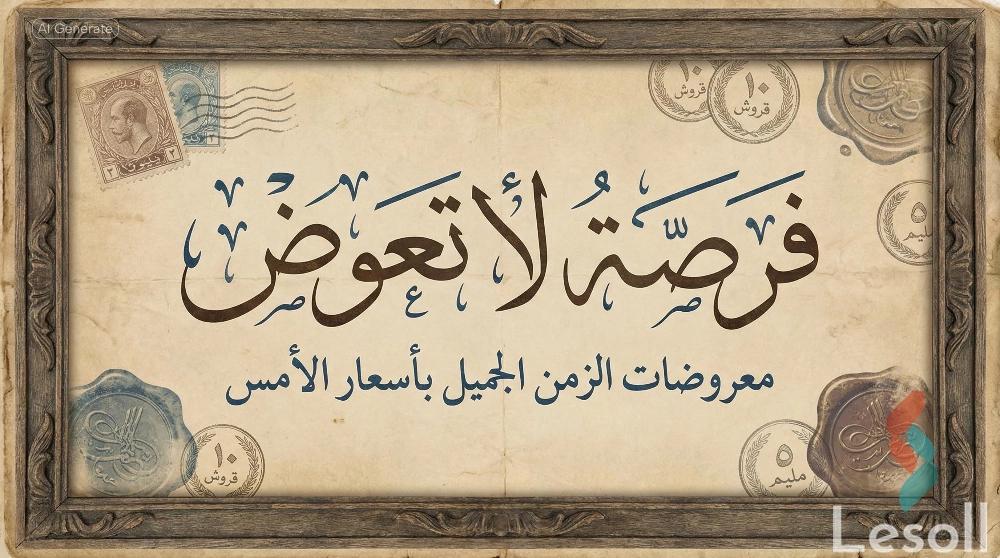 AI Generate
١٠
قروش
١٠
قروش
٥
مليم
٢
٢
فرصة لا تعوض
معروضات الزمن الجميل بأسعار الأمس
١٠
قروش
٥
مليم
Lesoll